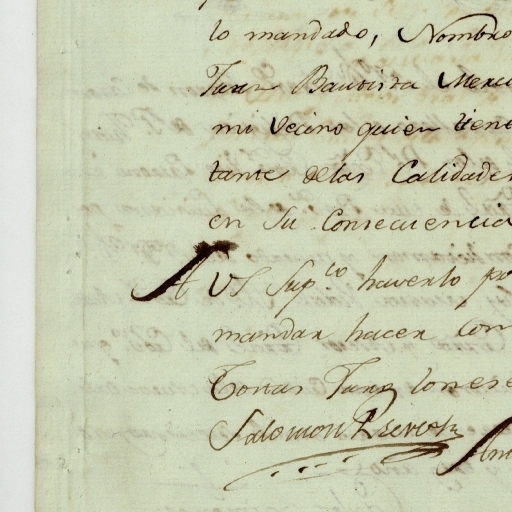 lo mandado, Nombro
Juan Bautista Merca
mi Vecino quien tiene
tante delas Calidades
en Su Consecuencia
A VS Sup.co haverlo po
mandar hacer con
Costas Juro lonese
Salomon